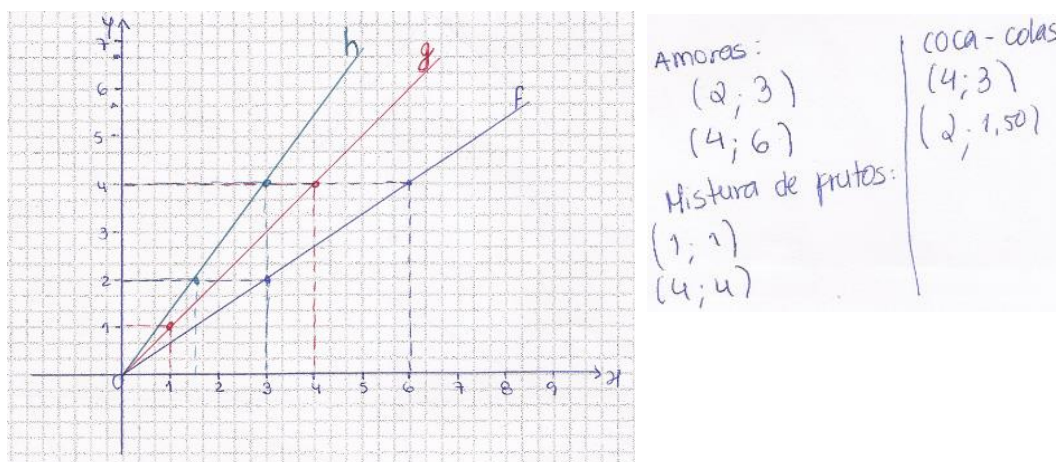 y
h
g
f
7
6
5
4
3
2
1
0 1 2 3 4 5 6 7 8 9 x
Amoras:
(2; 3)
(4; 6)
Mistura de frutos:
(1; 1)
(4; 4)
Coca-colas
(4; 3)
(2; 1,50)